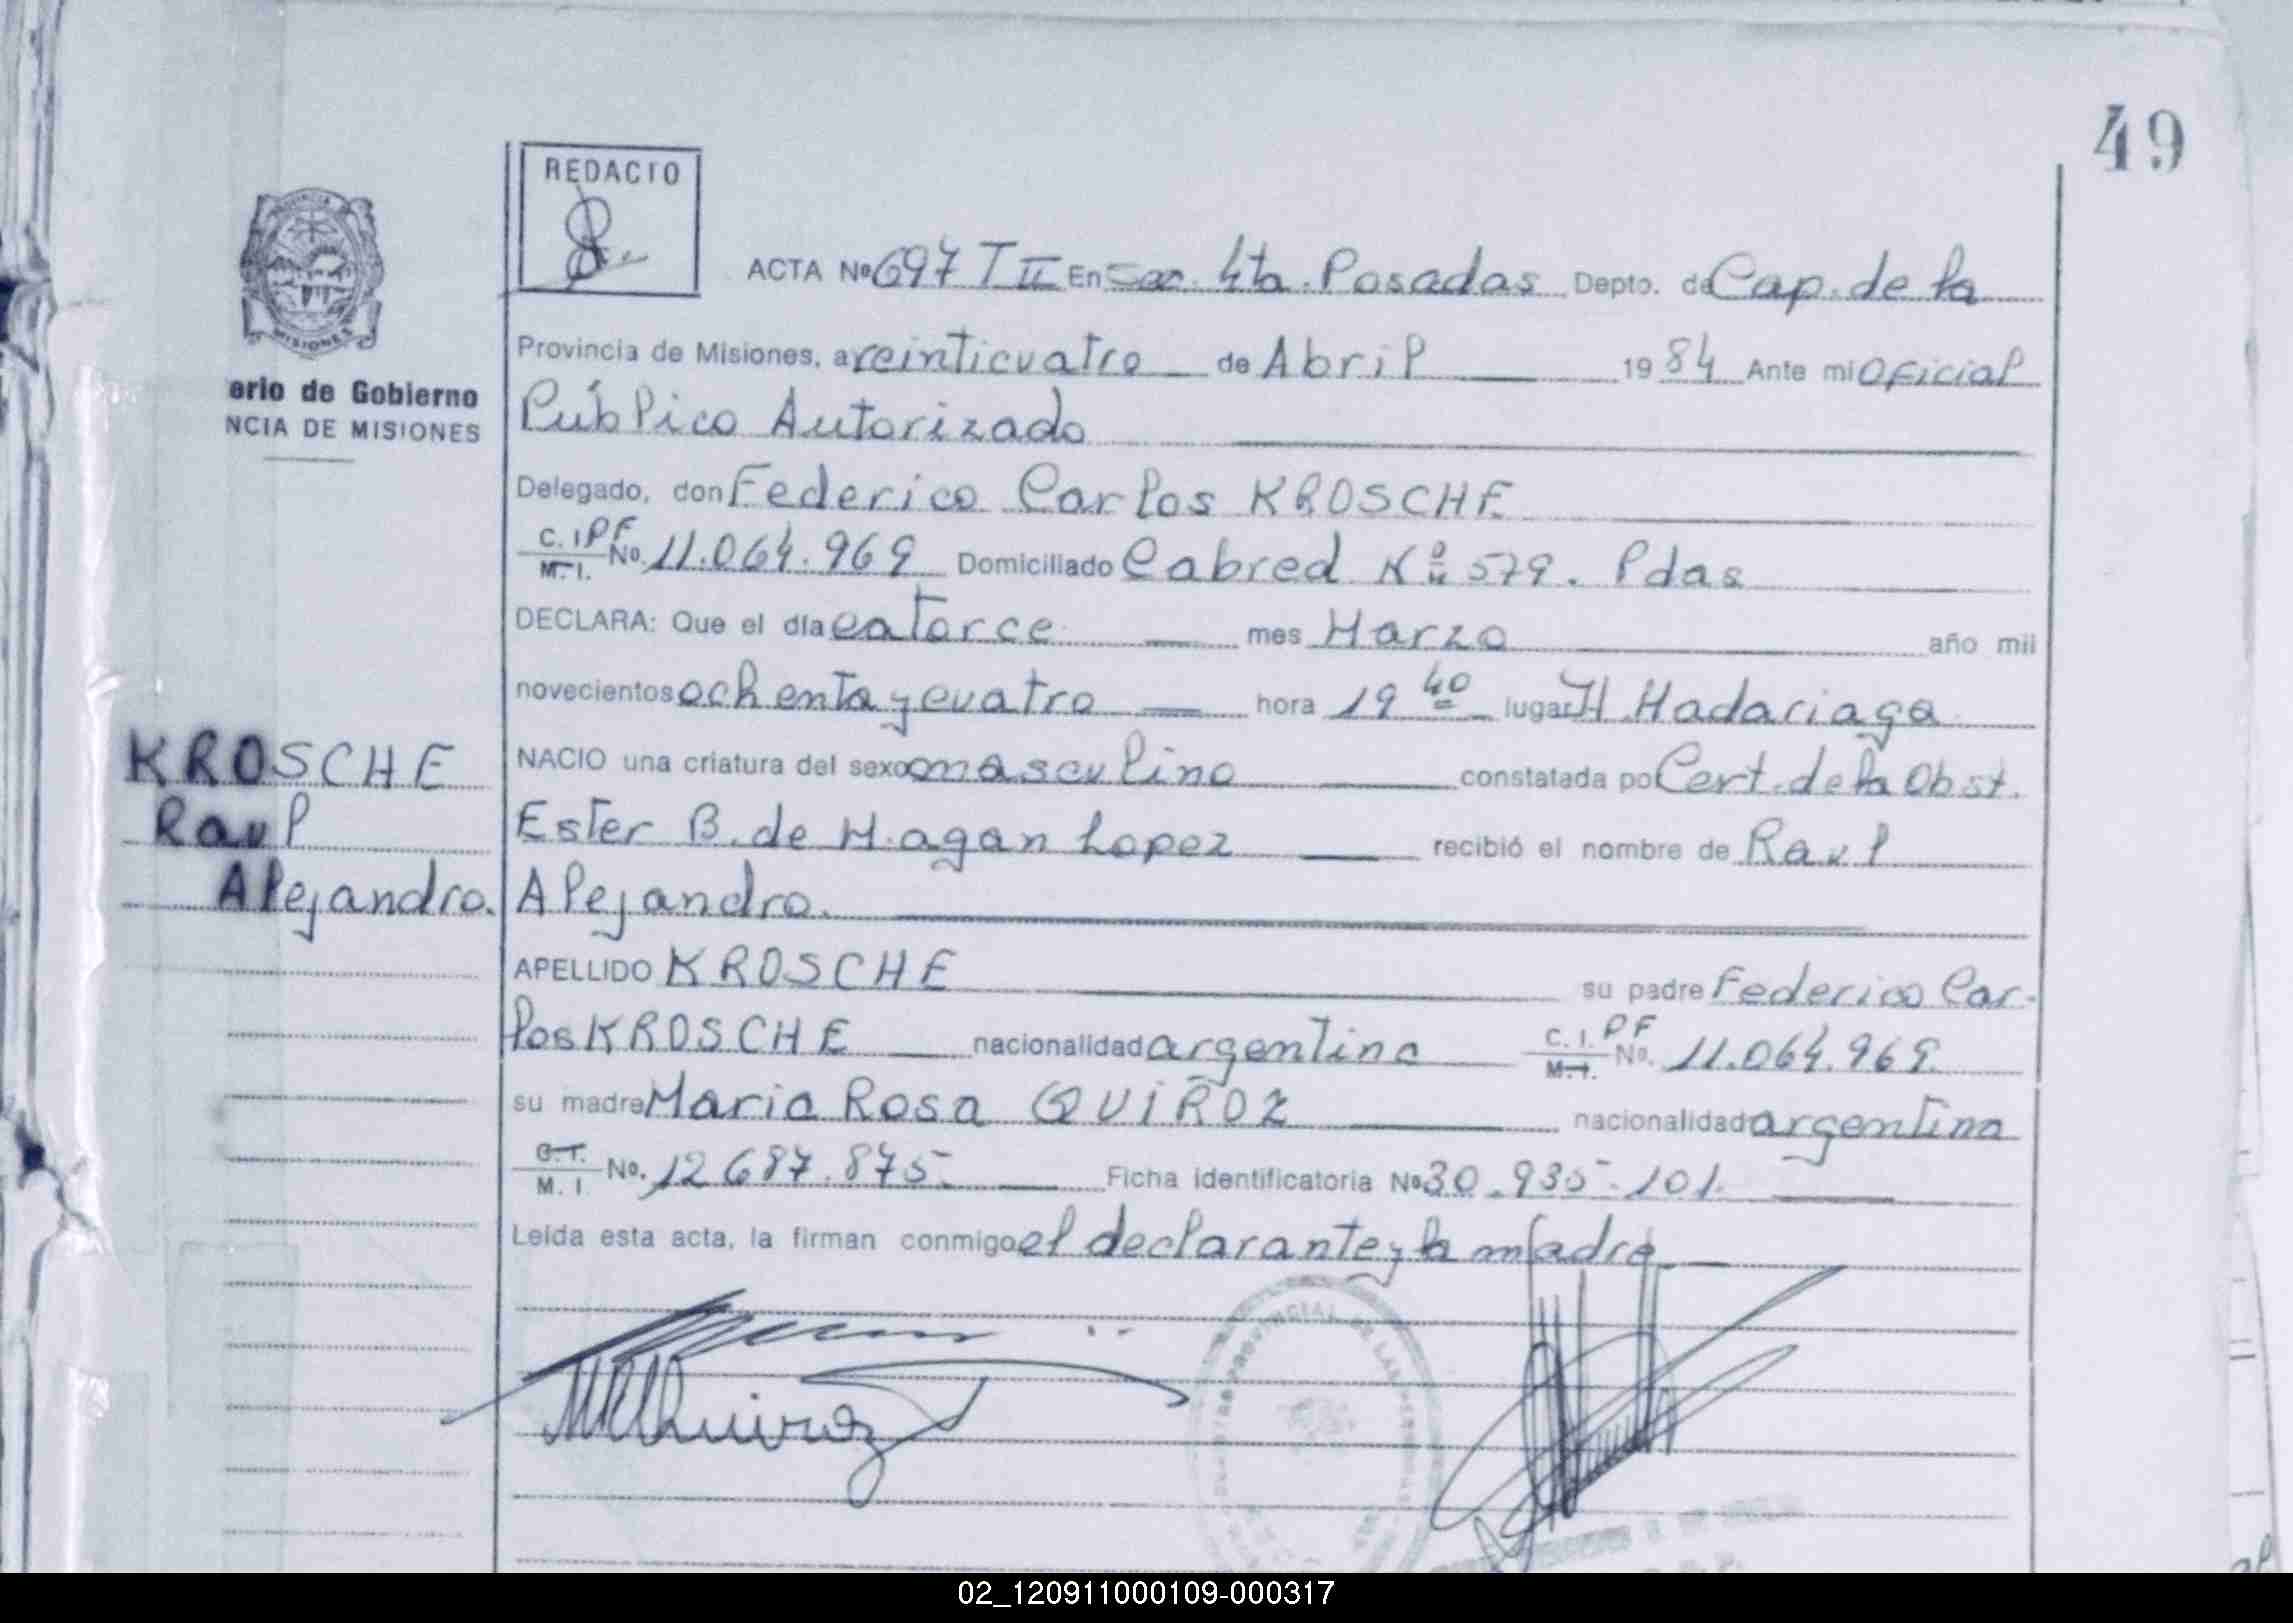 49
REDACTO
ACTA Nº 697 T II En Sec. 4ta. Posadas Depto. de Cap. de la
Provincia de Misiones, a veinticuatro de Abril 1984 Ante mi Oficial
erio de Gobierno
NCIA DE MISIONES
Público Autorizado
Delegado, don Federico Carlos KROSCHE
C. I. PF
M. I. No. 11.064.969 Domiciliado Cabred Nº 579. Pdas
DECLARA: Que el día catorce mes Marzo año mil
novecientos ochenta y cuatro hora 19 40 lugar H. Madariaga
KROSCHE
Raul
Alejandro.
NACIO una criatura del sexo masculino constatada po Cert. de la Obst.
Ester B. de Magan Lopez recibió el nombre de Raul
Alejandro.
APELLIDO KROSCHE su padre Federico Car-
los KROSCHE nacionalidad argentina C. I. PF
M. I. No. 11.064.969.
su madre Maria Rosa QUIROZ nacionalidad argentina
C. I.
M. I. No. 12.687.875. Ficha identificatoria Nº 30.935.101.
Leída esta acta, la firman conmigo el declarante y la madre
MRQuiroz
02_120911000109-000317